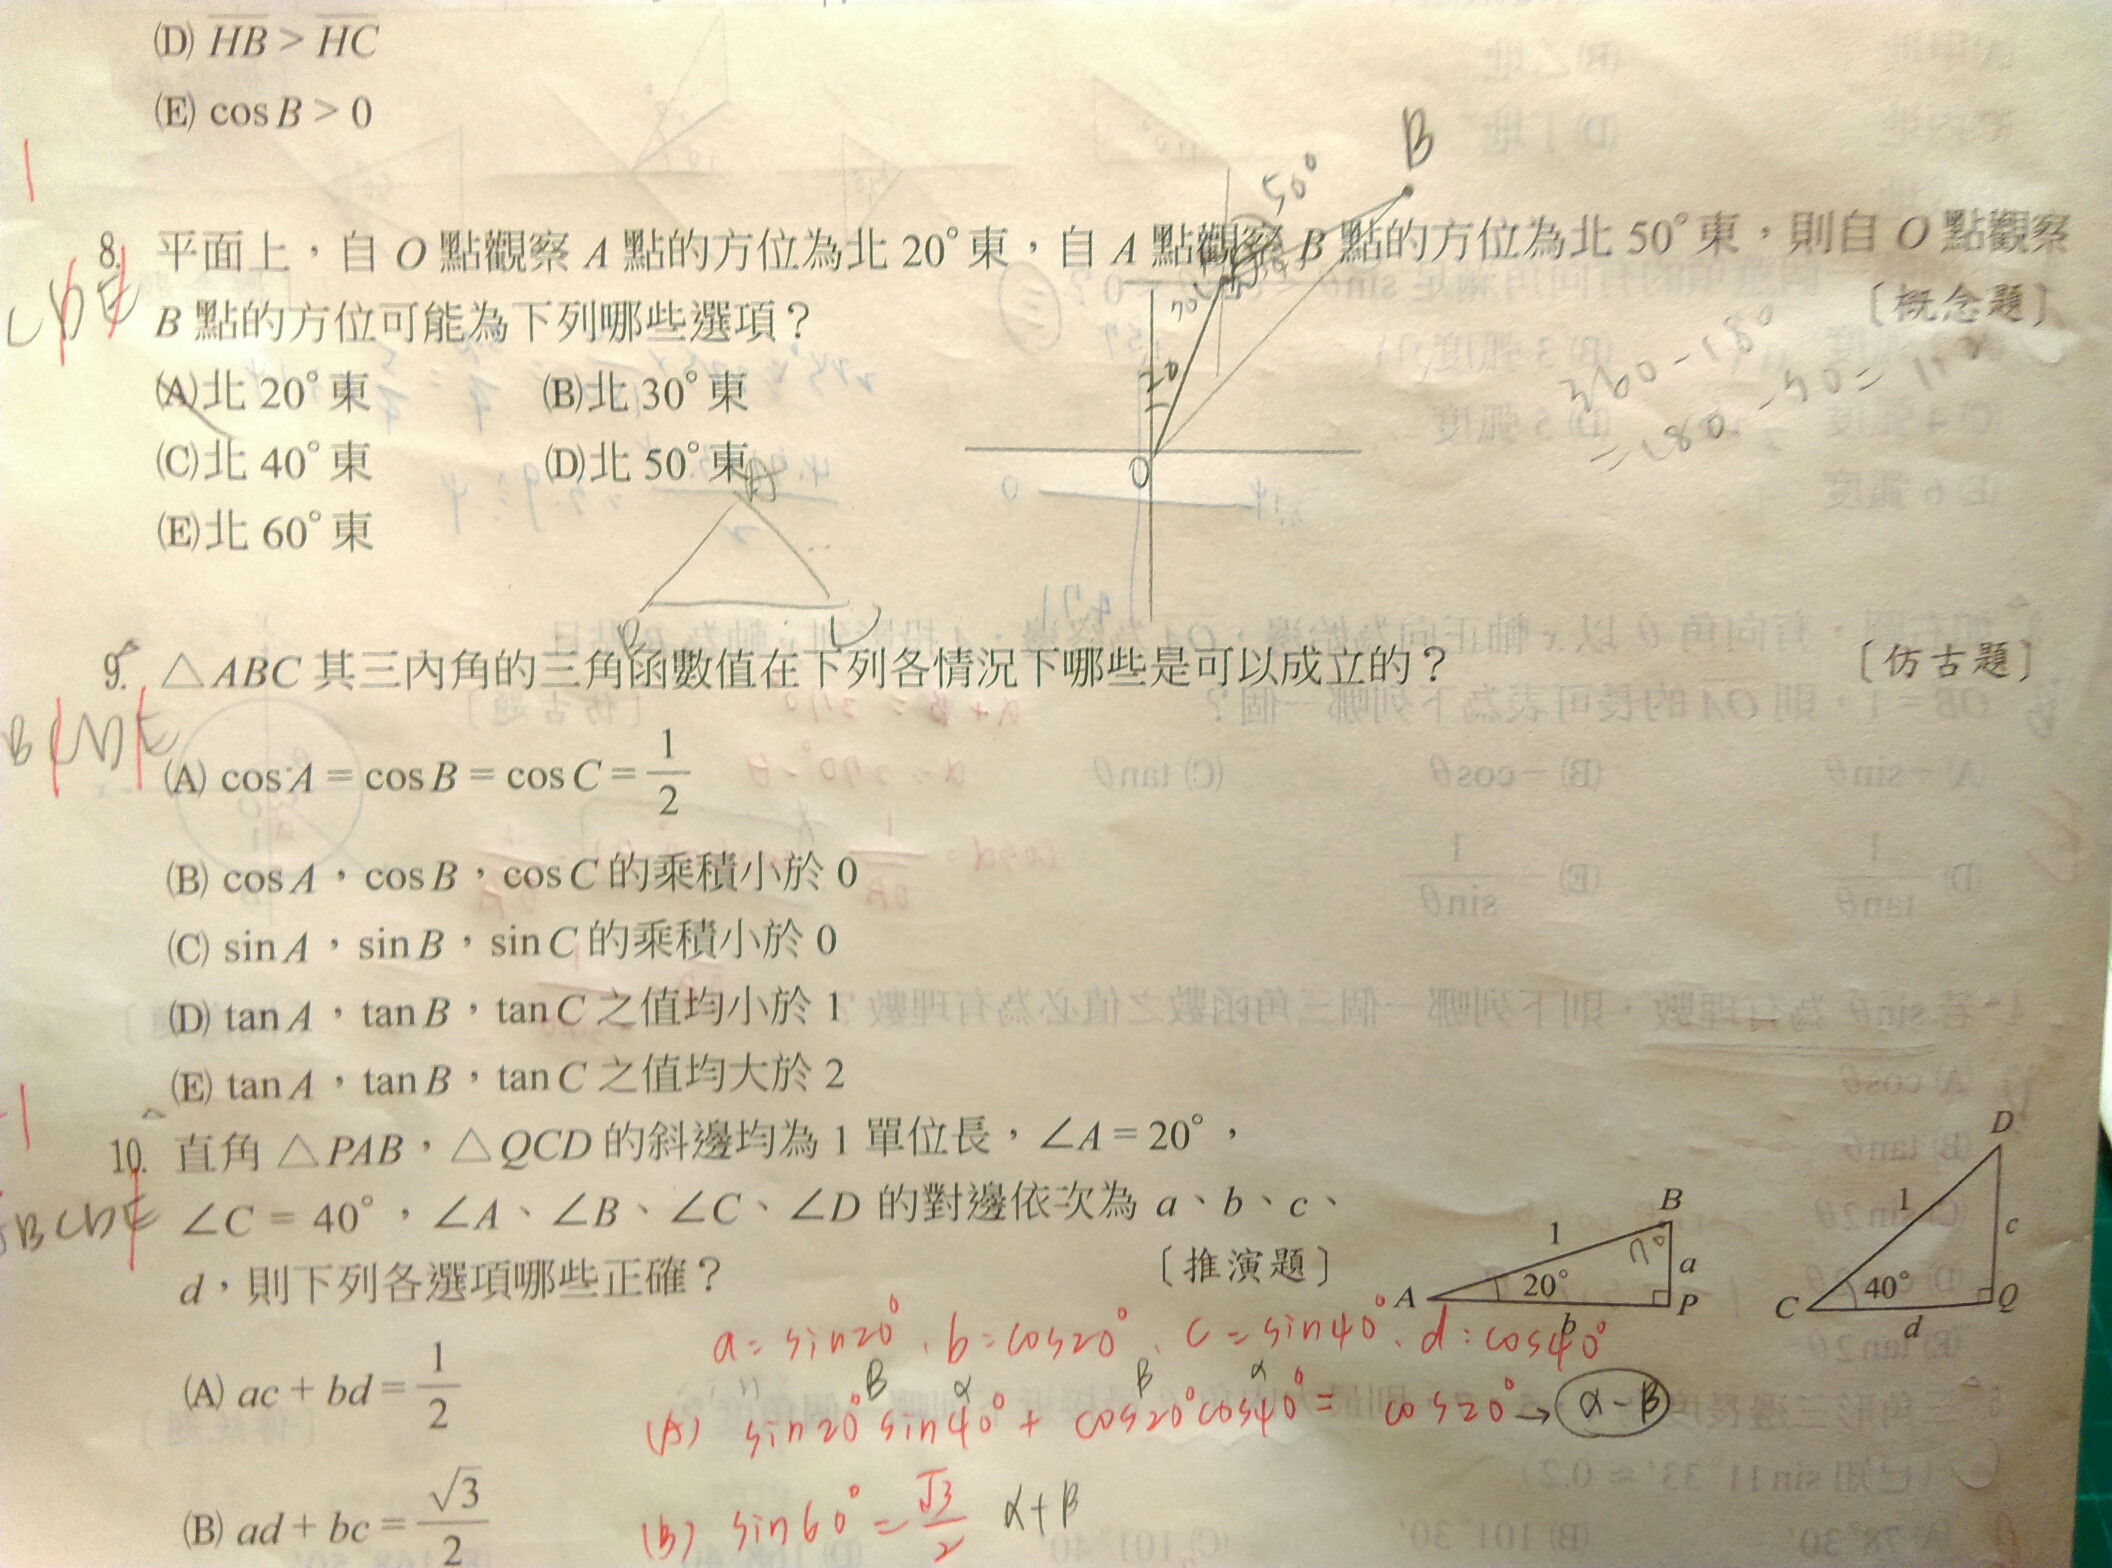 (D) HB > HC
(E) cos B > 0
8. 平面上，自 O 點觀察 A 點的方位為北 20° 東，自 A 點觀察 B 點的方位為北 50° 東，則自 O 點觀察
B 點的方位可能為下列哪些選項？ 〔概念題〕
(A)北 20° 東 (B)北 30° 東
(C)北 40° 東 (D)北 50° 東
(E)北 60° 東
B
50°
20
O
360-180
=180-
B
C
9. △ABC 其三內角的三角函數值在下列各情況下哪些是可以成立的？ 〔仿古題〕
(A) cos A = cos B = cos C = 1/2
(B) cos A，cos B，cos C 的乘積小於 0
(C) sin A，sin B，sin C 的乘積小於 0
(D) tan A，tan B，tan C 之值均小於 1
(E) tan A，tan B，tan C 之值均大於 2
10. 直角 △PAB，△QCD 的斜邊均為 1 單位長，∠A = 20°，
∠C = 40°，∠A、∠B、∠C、∠D 的對邊依次為 a、b、c、
d，則下列各選項哪些正確？ 〔推演題〕
A 20° 1 B 70 a P b
C 40° 1 D c Q d
a = sin20°, b = cos20°, c = sin40°, d = cos40°
(A) ac + bd = 1/2
β α β α
(A) sin20° sin40° + cos20° cos40° = cos20° → α-β
(B) ad + bc = √3/2
(B) sin60° = √3/2 α+β